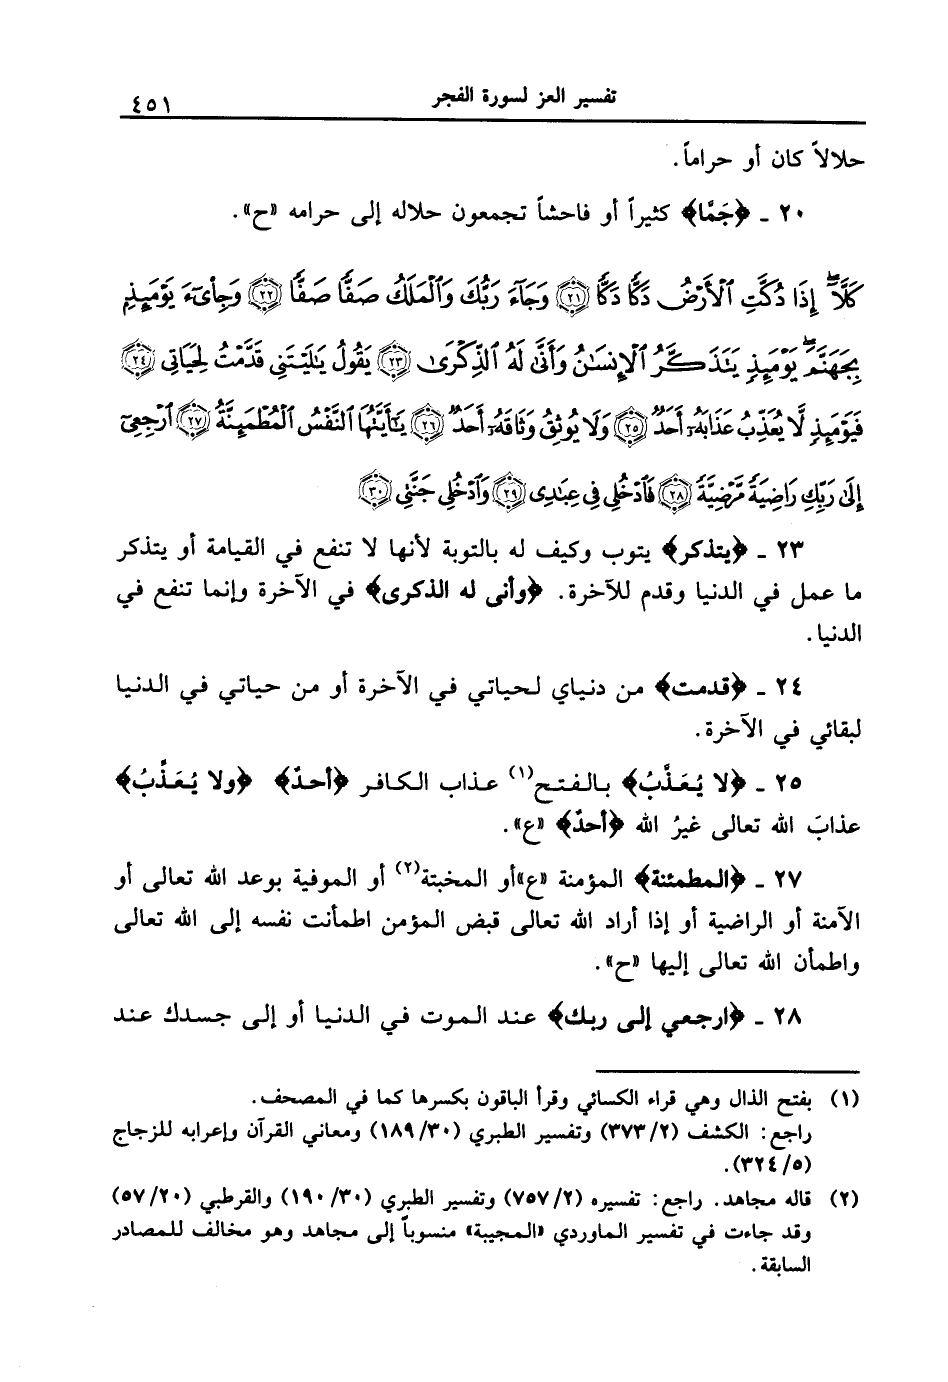 تفسير العز لسورة الفجر ٤٥١
حلالاً كان أو حراماً.
٢٠ ـ ﴿جَمًّا﴾ كثيراً أو فاحشاً تجمعون حلاله إلى حرامه «ح».
كَلَّآ إِذَا دُكَّتِ ٱلۡأَرۡضُ دَكّٗا دَكّٗا ٢١ وَجَآءَ رَبُّكَ وَٱلۡمَلَكُ صَفّٗا صَفّٗا ٢٢ وَجِاْيٓءَ يَوۡمَئِذِۭ
بِجَهَنَّمَۚ يَوۡمَئِذٖ يَتَذَكَّرُ ٱلۡإِنسَٰنُ وَأَنَّىٰ لَهُ ٱلذِّكۡرَىٰ ٢٣ يَقُولُ يَٰلَيۡتَنِي قَدَّمۡتُ لِحَيَاتِي ٢٤
فَيَوۡمَئِذٖ لَّا يُعَذِّبُ عَذَابَهُۥٓ أَحَدٞ ٢٥ وَلَا يُوثِقُ وَثَاقَهُۥٓ أَحَدٞ ٢٦ يَٰٓأَيَّتُهَا ٱلنَّفۡسُ ٱلۡمُطۡمَئِنَّةُ ٢٧ ٱرۡجِعِيٓ
إِلَىٰ رَبِّكِ رَاضِيَةٗ مَّرۡضِيَّةٗ ٢٨ فَٱدۡخُلِي فِي عِبَٰدِي ٢٩ وَٱدۡخُلِي جَنَّتِي ٣٠
٢٣ ـ ﴿يتذكر﴾ يتوب وكيف له بالتوبة لأنها لا تنفع في القيامة أو يتذكر
ما عمل في الدنيا وقدم للآخرة. ﴿وأنى له الذكرى﴾ في الآخرة وإنما تنفع في
الدنيا.
٢٤ ـ ﴿قدمت﴾ من دنياي لحياتي في الآخرة أو من حياتي في الدنيا
لبقائي في الآخرة.
٢٥ ـ ﴿لا يُعَذَّبُ﴾ بالفتح(١) عذاب الكافر ﴿أحدٌ﴾ ﴿ولا يُعَذِّبُ﴾
عذابَ الله تعالى غيرُ الله ﴿أحدٌ﴾ «ع».
٢٧ ـ ﴿المطمئنة﴾ المؤمنة «ع»أو المخبتة(٢) أو الموفية بوعد الله تعالى أو
الآمنة أو الراضية أو إذا أراد الله تعالى قبض المؤمن اطمأنت نفسه إلى الله تعالى
واطمأن الله تعالى إليها «ح».
٢٨ ـ ﴿ارجعي إلى ربك﴾ عند الموت في الدنيا أو إلى جسدك عند
(١) بفتح الذال وهي قراء الكسائي وقرأ الباقون بكسرها كما في المصحف.
راجع: الكشف (٣٧٣/٢) وتفسير الطبري (١٨٩/٣٠) ومعاني القرآن وإعرابه للزجاج
(٣٢٤/٥).
(٢) قاله مجاهد. راجع: تفسيره (٧٥٧/٢) وتفسير الطبري (١٩٠/٣٠) والقرطبي (٥٧/٢٠)
وقد جاءت في تفسير الماوردي «المجيبة» منسوباً إلى مجاهد وهو مخالف للمصادر
السابقة.